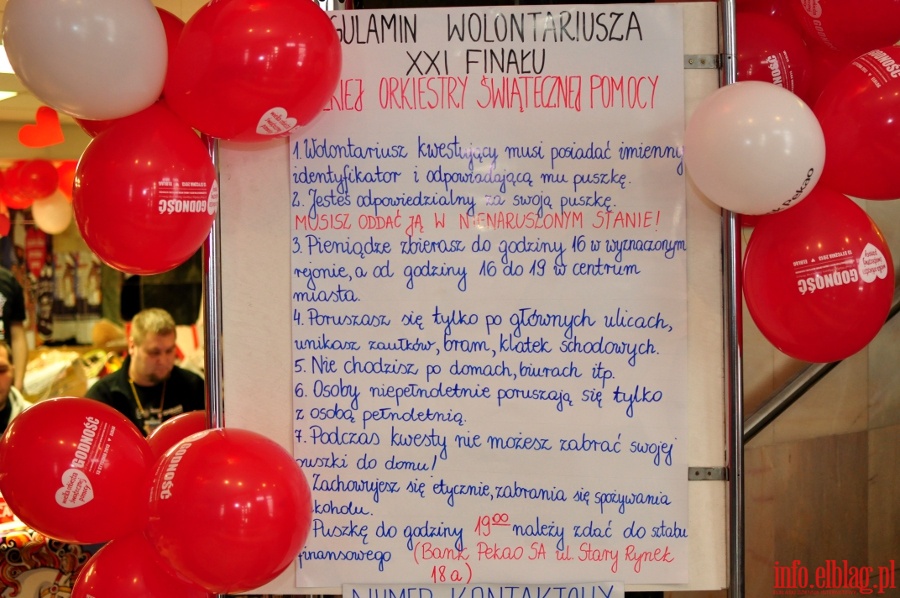 GULAMIN WOLONTARIUSZA
XXI FINAŁU
ORKIESTRY ŚWIĄTECZNEJ POMOCY
1. Wolontariusz kwestujący musi posiadać imienny
identyfikator i odpowiadającą mu puszkę.
2. Jesteś odpowiedzialny za swoją puszkę.
MUSISZ ODDAĆ JĄ W NIENARUSZONYM STANIE!
3. Pieniądze zbierasz do godziny 16 w wyznaczonym
rejonie, a od godziny 16 do 19 w centrum
miasta.
4. Poruszasz się tylko po głównych ulicach,
unikasz zaułków, bram, klatek schodowych.
5. Nie chodzisz po domach, biurach itp.
6. Osoby niepełnoletnie poruszają się tylko
z osobą pełnoletnią.
7. Podczas kwesty nie możesz zabrać swojej
puszki do domu!
Zachowujesz się etycznie, zabrania się spożywania
koholu.
Puszkę do godziny 19 00 należy zdać do sztabu
finansowego (Bank Pekao SA ul Stary Rynek
18a)
NUMER KONTAKTOWY
GODNOŚĆ
GODNOŚĆ
GODNOŚĆ
GODNOŚĆ
GODNOŚĆ
k Pekao
info.elblag.pl